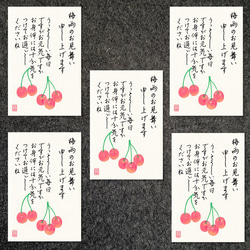 梅雨のお見舞い
申し上げます
うっとうしい毎日
ですがお元気ですか
お身体には十分気を
つけてお過ごし
くださいね
梅雨のお見舞い
申し上げます
うっとうしい毎日
ですがお元気ですか
お身体には十分気を
つけてお過ごし
くださいね
梅雨のお見舞い
申し上げます
うっとうしい毎日
ですがお元気ですか
お身体には十分気を
つけてお過ごし
くださいね
梅雨のお見舞い
申し上げます
うっとうしい毎日
ですがお元気ですか
お身体には十分気を
つけてお過ごし
くださいね
梅雨のお見舞い
申し上げます
うっとうしい毎日
ですがお元気ですか
お身体には十分気を
つけてお過ごし
くださいね